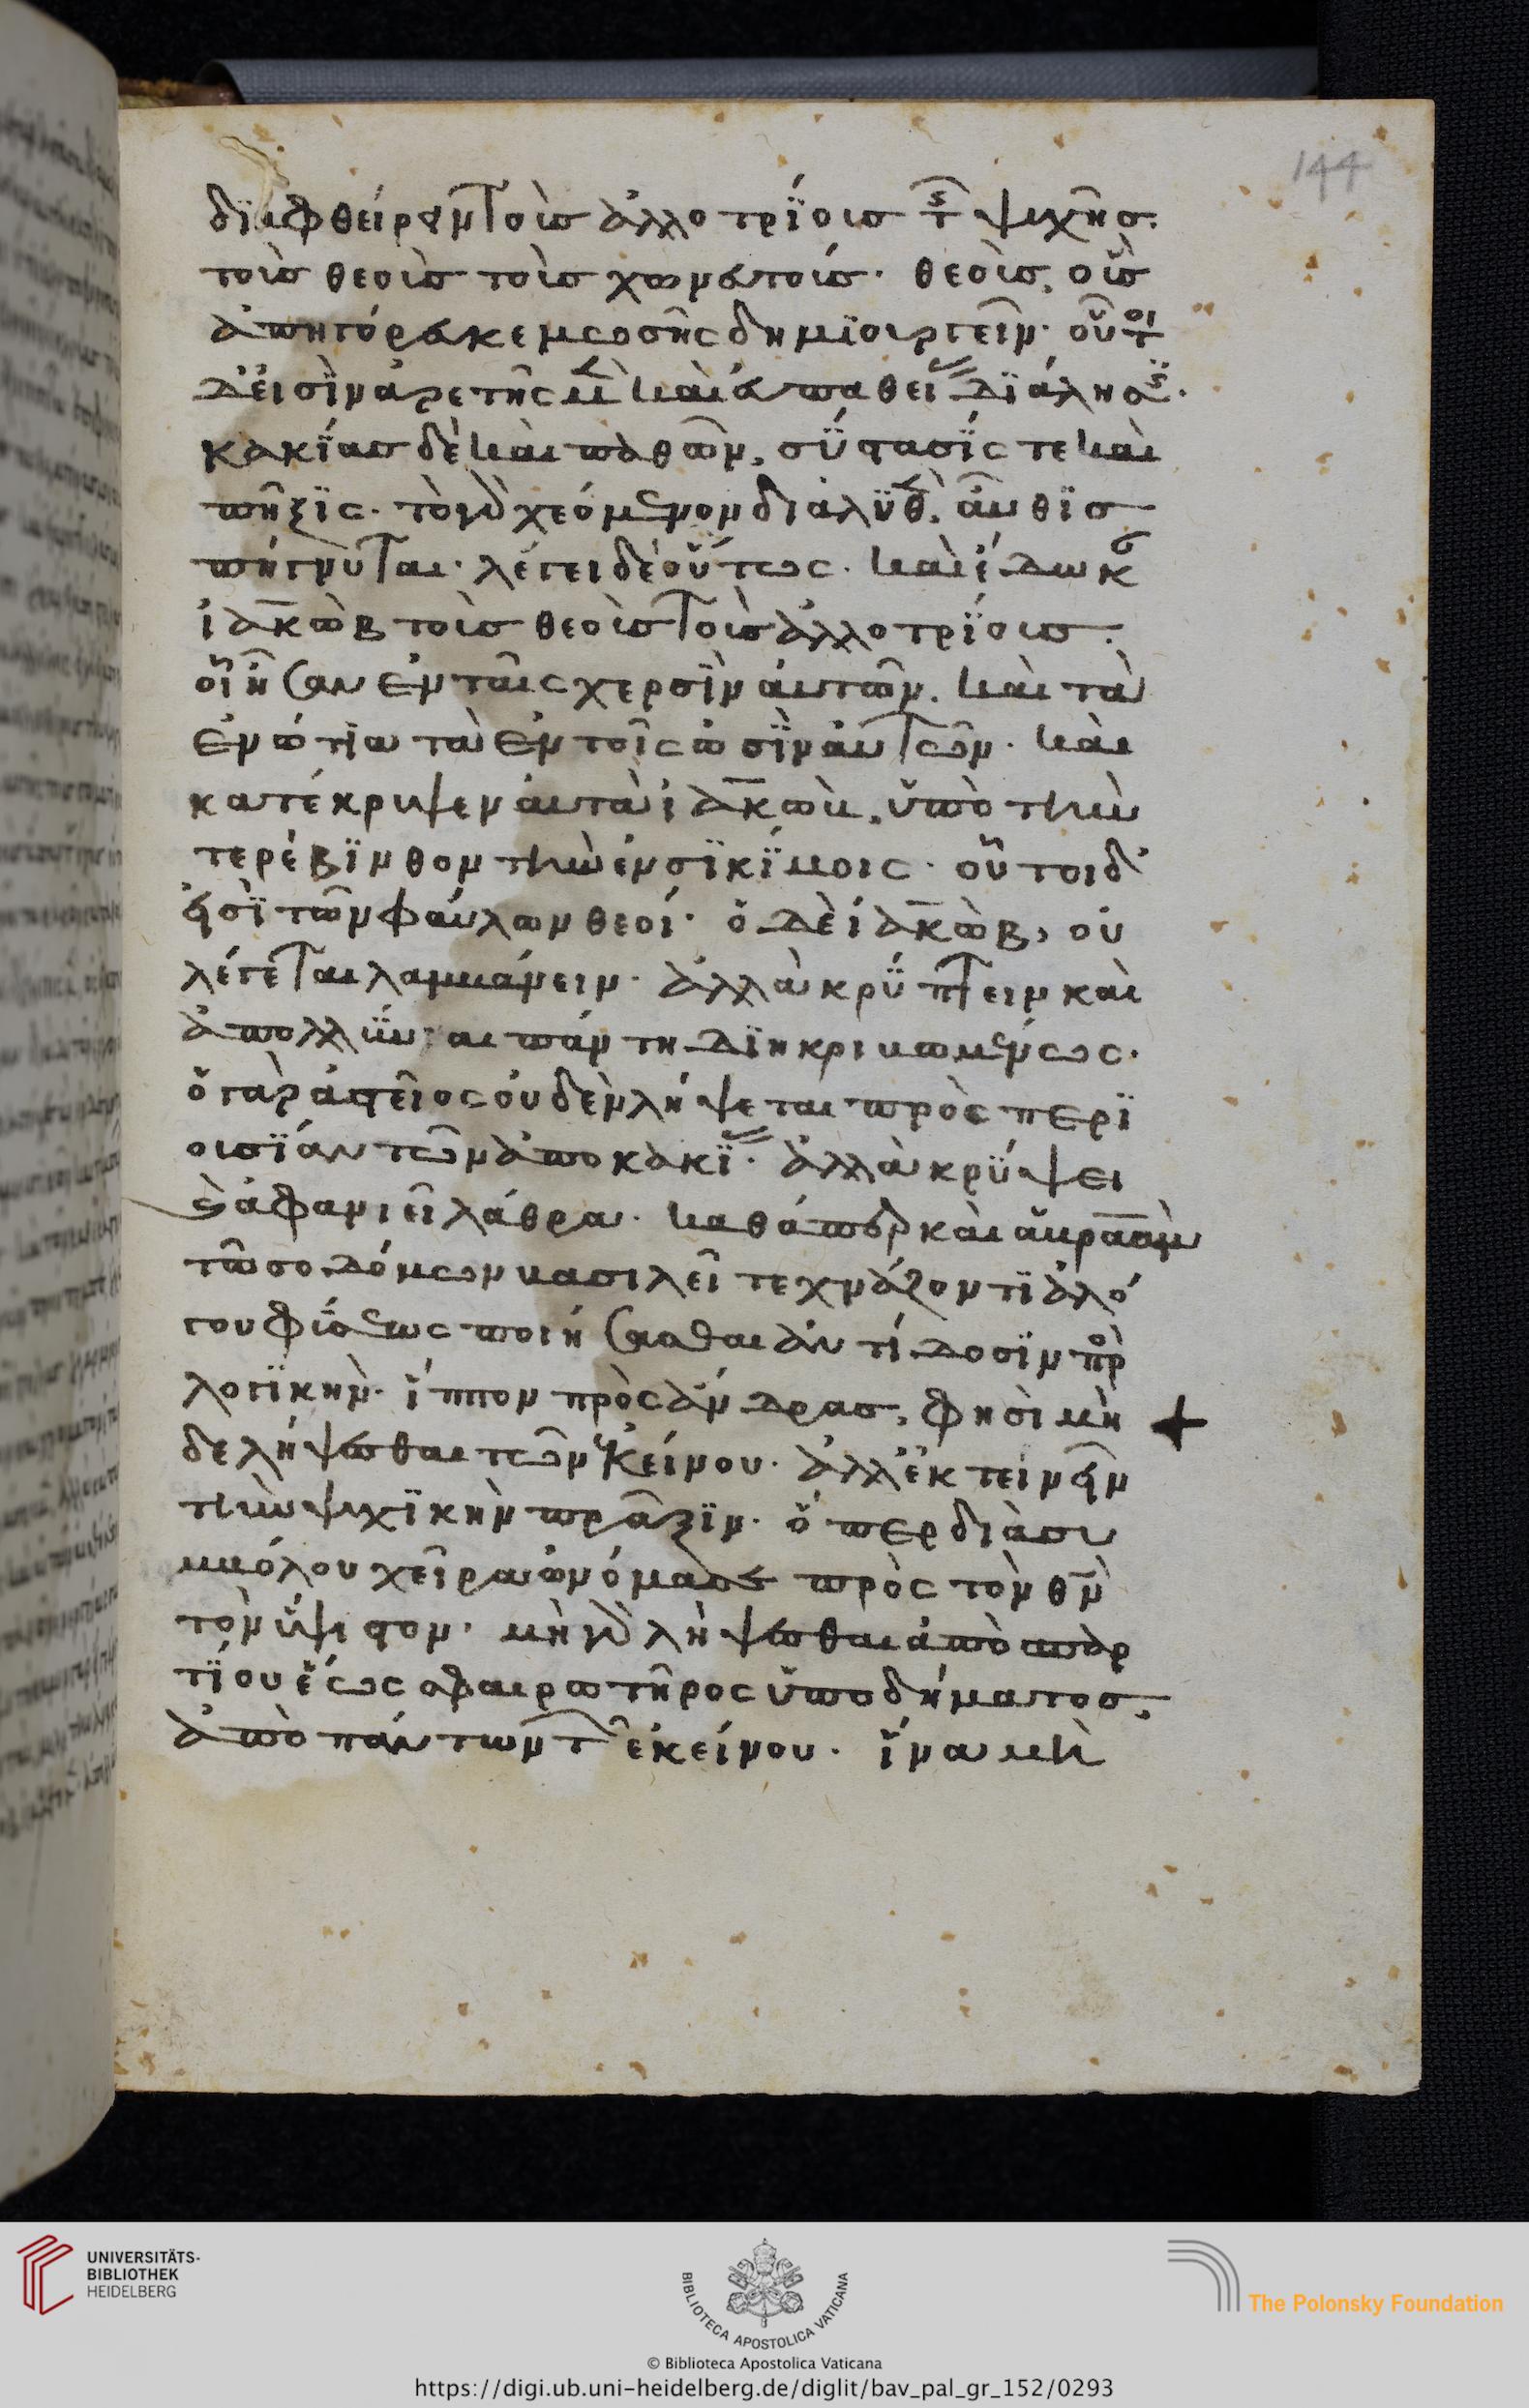 144
διαφθείρων τοῖς ἀλλοτρίοις τ(ῆς) ψυχῆς.
τοῖς θεοῖς τοῖς χωνευτοῖς. θεοῖς, οὓς
ἀπηγόρευκε μωσῆς δημιουργεῖν. οὗτοι
δ' εἰσὶν ἀρετῆς μὲν καὶ εὐπαθείας διάλυσις.
κακίας δὲ καὶ παθῶν, σύστασίς τε καὶ
πῆξις. τὸ γὰρ χεόμενον διαλυθὲν, αὖθις
πήγνυται. λέγει δὲ οὕτως. καὶ ἔδωκαν
ἰακὼβ τοὺς θεοὺς τοὺς ἀλλοτρίους.
οἳ ἦσαν ἐν ταῖς χερσὶν αὐτῶν. καὶ τὰ
ἐνώτια τὰ ἐν τοῖς ὠσὶν αὐτῶν. καὶ
κατέκρυψεν αὐτὰ ἰακὼβ, ὑπὸ τὴν
τερέβινθον τὴν ἐν σικίμοις. οὗτοι δ'
εἰσὶ τῶν φαύλων θεοί. ὁ δὲ ἰακὼβ, οὐ
λέγεται λαμβάνειν. ἀλλὰ κρύπτειν καὶ
ἀπολλύναι πάντη διηκριβωμένως.
ὁ γὰρ ἀστεῖος οὐδὲν λήψεται πρὸς περι
ουσίαν τῶν ἀπὸ κακίας. ἀλλὰ κρύψει
καὶ ἀφανιεῖ λάθρα. καθάπερ καὶ ἀβραὰμ
τῶ σοδόμων βασιλεῖ τεχνάζοντι ἀλό
γου φύσεως ποιήσασθαι ἀντίδοσιν πρὸς
λογικὴν. ἵππον πρὸς ἄνδρας, φησὶ μη
δὲ λήψεσθαι τῶν ἐκείνου. ἀλλ' ἐκτείνειν
τὴν ψυχικὴν πρᾶξιν. ὅπερ διὰ συ
μβόλου χεῖρα ὠνόμασε πρὸς τὸν θν
τὸν ὕψιστον. μὴ γὰρ λήψεσθαι ἀπὸ σπαρ
τίου ἕως σφαιρωτῆρος ὑποδήματος.
ἀπὸ πάντων τῶν ἐκείνου. ἵνα μὴ
UNIVERSITÄTS-
BIBLIOTHEK
HEIDELBERG
BIBLIOTECA APOSTOLICA VATICANA
The Polonsky Foundation
© Biblioteca Apostolica Vaticana
https://digi.ub.uni-heidelberg.de/diglit/bav_pal_gr_152/0293